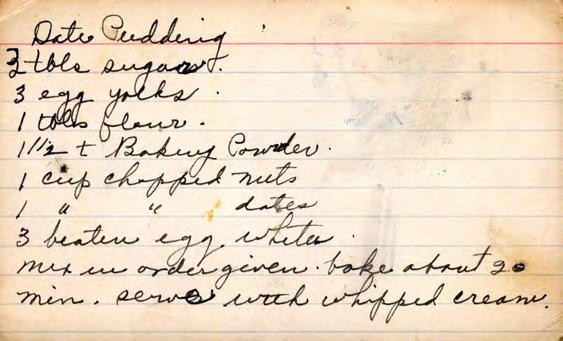 Date Pudding
3 tbls sugar.
3 egg yolks.
1 tbls flour.
1 1/2 t Baking Powder.
1 cup chopped nuts
1 " " dates
3 beaten egg whites.
mix in order given. bake about 20
min. serve with whipped cream.